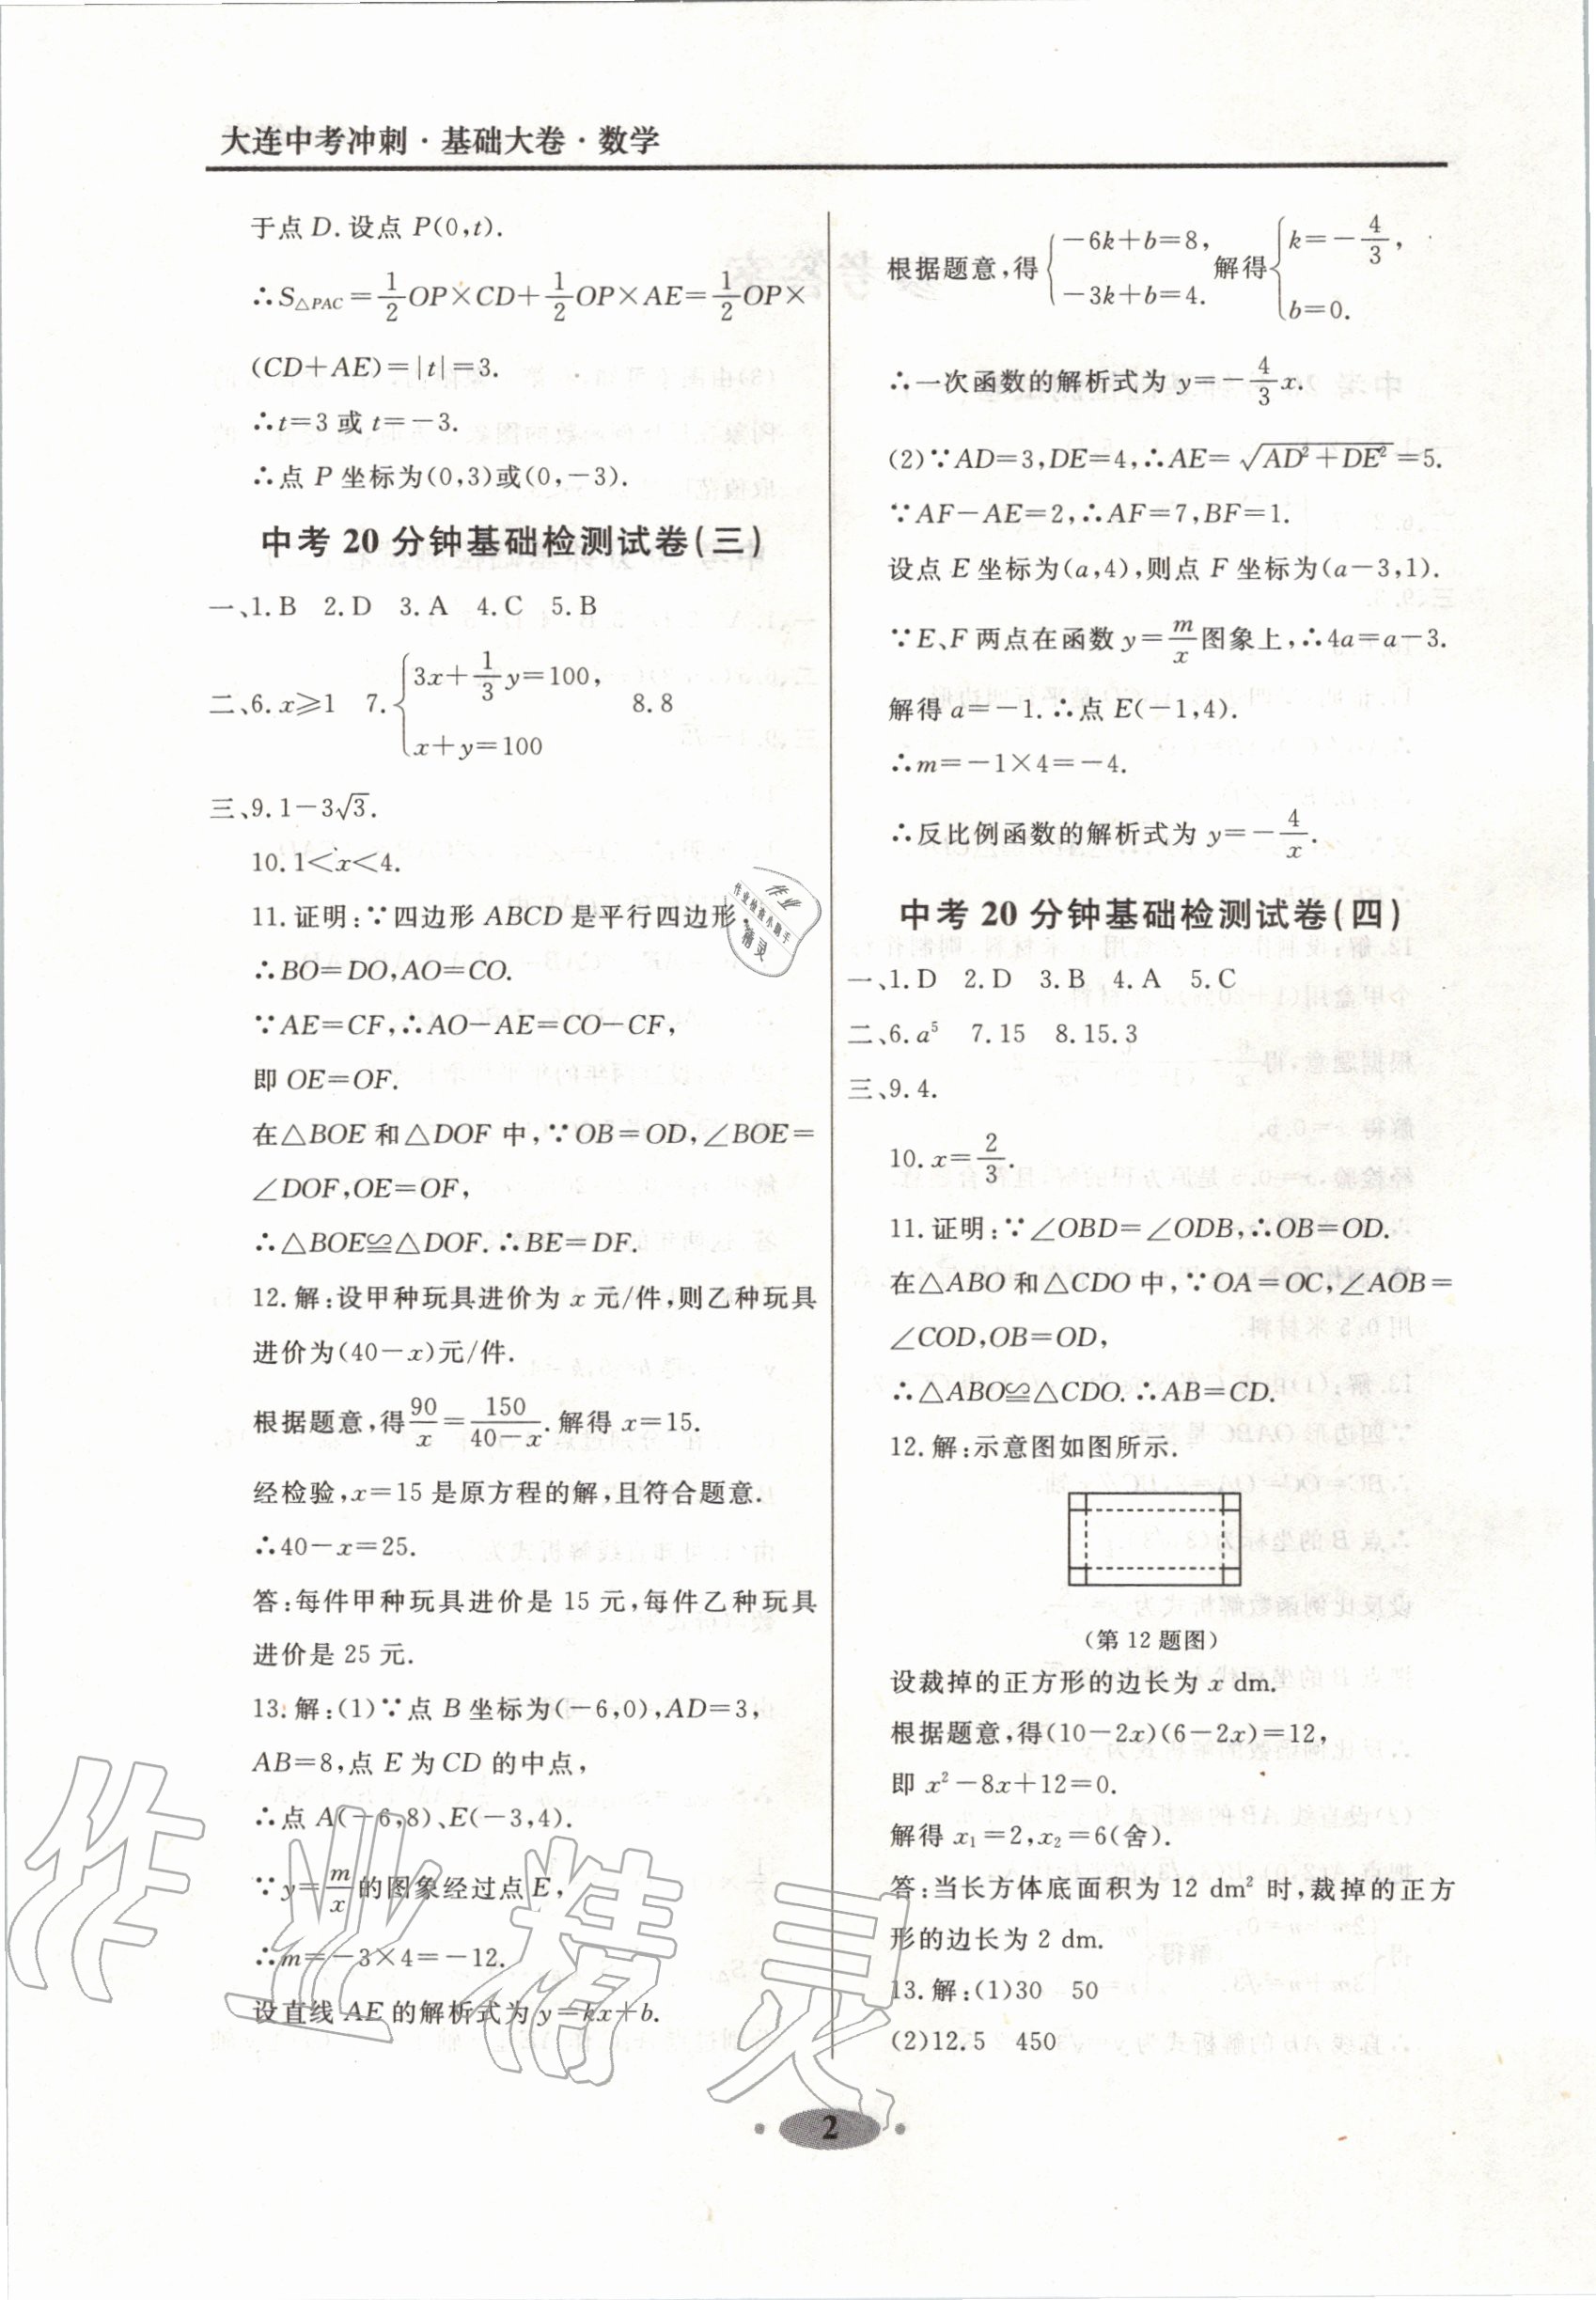 大连中考冲刺·基础大卷·数学
于点 D.设点 P(0,t).
∴S△PAC=1/2OP×CD+1/2OP×AE=1/2OP×
(CD+AE)=|t|=3.
∴t=3 或 t=-3.
∴点 P 坐标为(0,3)或(0,-3).
中考 20 分钟基础检测试卷(三)
一、1.B 2.D 3.A 4.C 5.B
二、6.x⩾1 7.{3x+1/3y=100, x+y=100 8.8
三、9.1-3√3.
10.1<x<4.
11.证明:∵四边形 ABCD 是平行四边形,
∴BO=DO,AO=CO.
∵AE=CF,∴AO-AE=CO-CF,
即 OE=OF.
在△BOE 和△DOF 中,∵OB=OD,∠BOE=
∠DOF,OE=OF,
∴△BOE≌△DOF.∴BE=DF.
12.解:设甲种玩具进价为 x 元/件,则乙种玩具
进价为(40-x)元/件.
根据题意,得90/x=150/(40-x).解得 x=15.
经检验,x=15 是原方程的解,且符合题意.
∴40-x=25.
答:每件甲种玩具进价是 15 元,每件乙种玩具
进价是 25 元.
13.解:(1)∵点 B 坐标为(-6,0),AD=3,
AB=8,点 E 为 CD 的中点,
∴点 A(-6,8)、E(-3,4).
∵y=m/x的图象经过点 E,
∴m=-3×4=-12.
设直线 AE 的解析式为 y=kx+b.
根据题意,得{-6k+b=8, -3k+b=4. 解得{k=-4/3, b=0.
∴一次函数的解析式为 y=-4/3x.
(2)∵AD=3,DE=4,∴AE=√(AD²+DE²)=5.
∵AF-AE=2,∴AF=7,BF=1.
设点 E 坐标为(a,4),则点 F 坐标为(a-3,1).
∵E、F 两点在函数 y=m/x图象上,∴4a=a-3.
解得 a=-1.∴点 E(-1,4).
∴m=-1×4=-4.
∴反比例函数的解析式为 y=-4/x.
中考 20 分钟基础检测试卷(四)
一、1.D 2.D 3.B 4.A 5.C
二、6.a⁵ 7.15 8.15.3
三、9.4.
10.x=2/3.
11.证明:∵∠OBD=∠ODB,∴OB=OD.
在△ABO 和△CDO 中,∵OA=OC,∠AOB=
∠COD,OB=OD,
∴△ABO≌△CDO.∴AB=CD.
12.解:示意图如图所示.
(第 12 题图)
设裁掉的正方形的边长为 x dm.
根据题意,得(10-2x)(6-2x)=12,
即 x²-8x+12=0.
解得 x₁=2,x₂=6(舍).
答:当长方体底面积为 12 dm² 时,裁掉的正方
形的边长为 2 dm.
13.解:(1)30 50
(2)12.5 450
2
作业
作业检查小助手
精灵
作业精灵